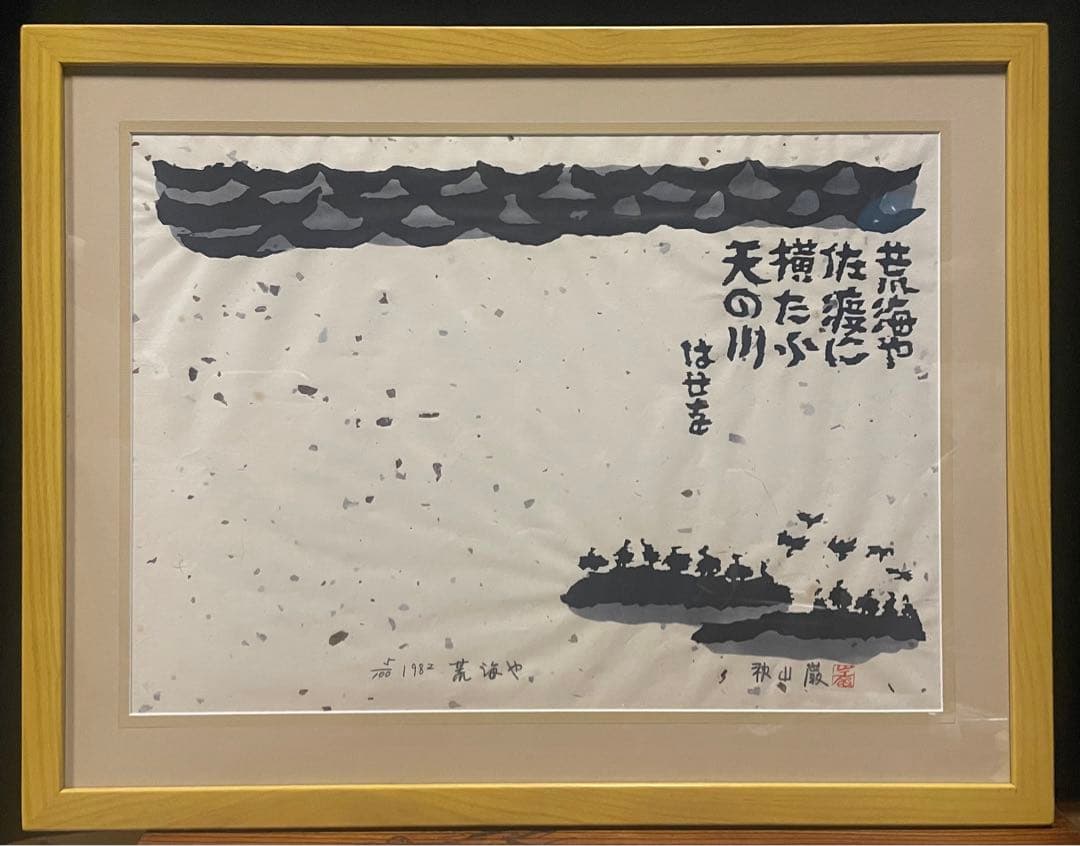 荒海や
佐渡に
横たふ
天の川
はせを
5/100 1982 荒海や 秋山巌